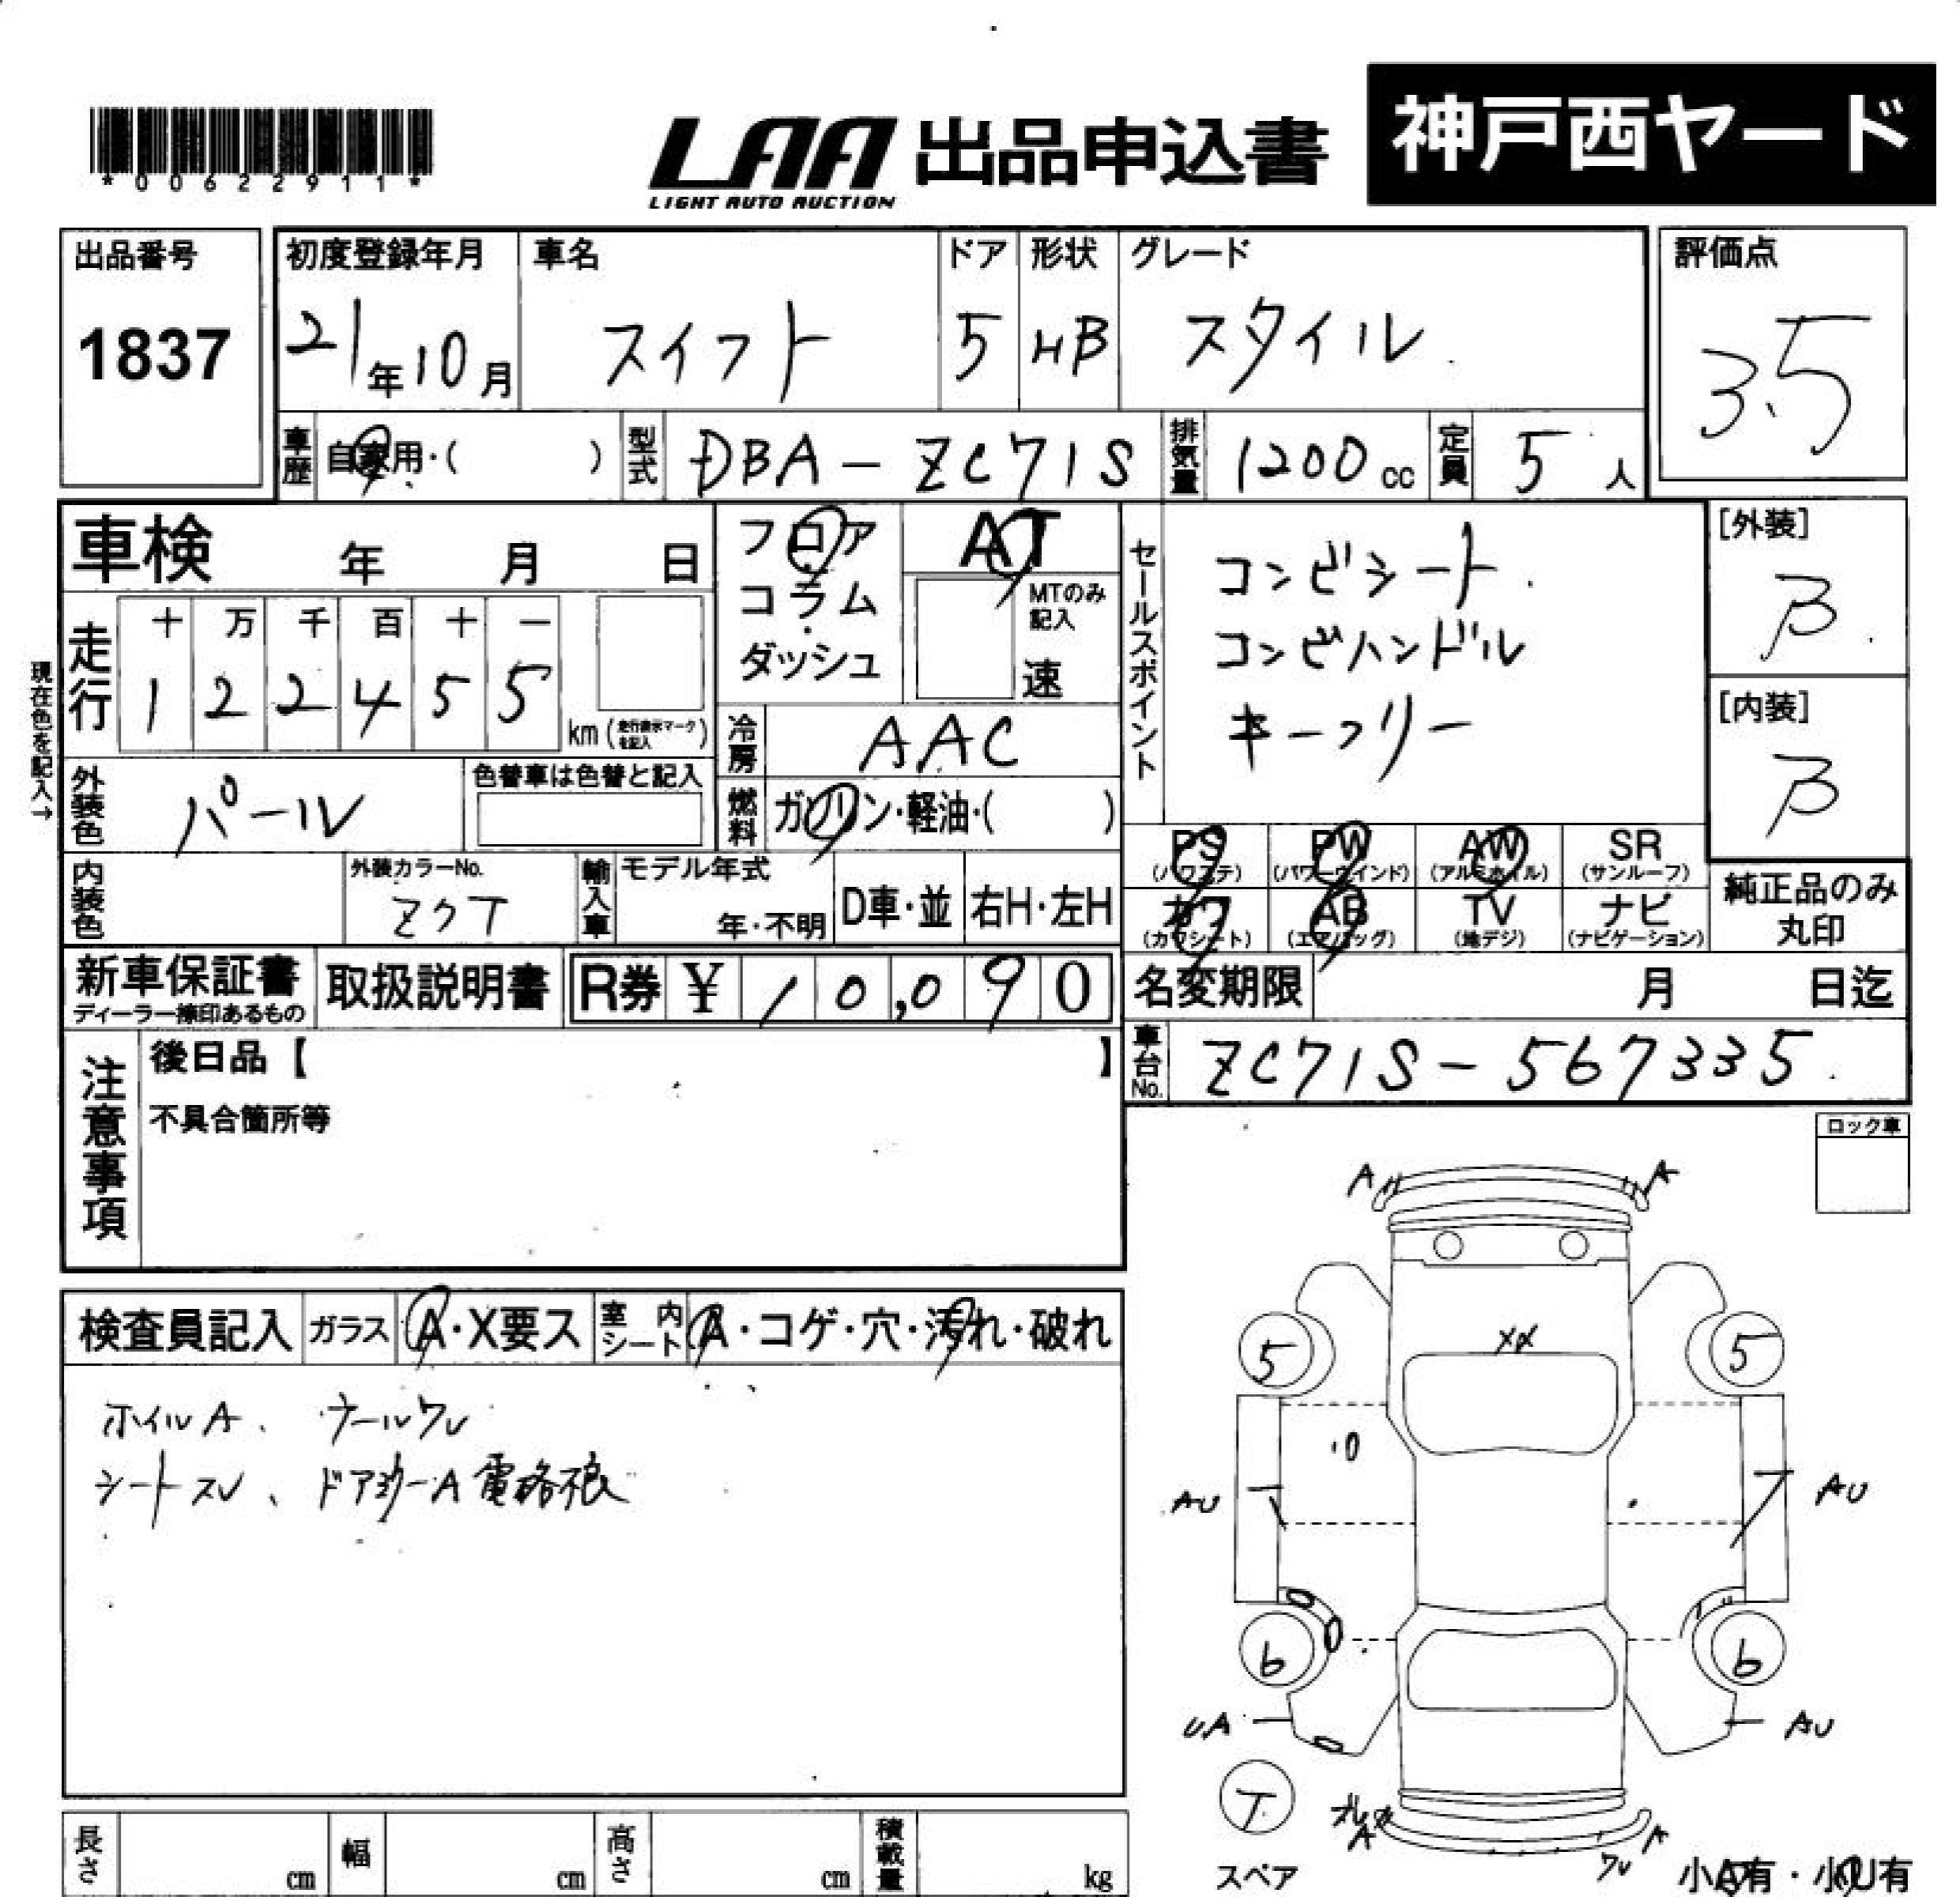 *00622911*
LAA 出品申込書 神戸西ヤード
LIGHT AUTO AUCTION
出品番号 1837
初度登録年月 21年10月
車名 スイフト
ドア 5
形状 HB
グレード スタイル
評価点 3.5
車歴 自家用・( )
型式 DBA-ZC71S
排気量 1200cc
定員 5人
車検 年 月 日
フロア・コラム・ダッシュ
AT
MTのみ記入
速
セールスポイント
コンビシート
コンビハンドル
キーフリー
[外装] B
[内装] B
現在色を記入→
走行
十 万 千 百 十 一
1 2 2 4 5 5
km (走行表示マークを記入)
冷房 AAC
外装色 パール
色替車は色替と記入
燃料 ガソリン・軽油・( )
PS (パワステ)
PW (パワーウインド)
AW (アルミホイル)
SR (サンルーフ)
カワ (カワシート)
AB (エアバッグ)
TV (地デジ)
ナビ (ナビゲーション)
純正品のみ丸印
内装色
外装カラーNo. Z7T
輸入車
モデル年式 年・不明
D車・並
右H・左H
新車保証書
ディーラー捺印あるもの
取扱説明書
R券 ¥ 10,090
名変期限 月 日迄
車台No. ZC71S-567335
注意事項
後日品【 】
不具合箇所等
ロック車
検査員記入
ガラス A・X要ス
室内シート A・コゲ・穴・汚れ・破れ
ホイルA、
シートスレ、
A A
XX
5 5
AU AU
6 6
UA AU
T
スペア
A A
ワレ
小A有・小U有
長さ cm
幅 cm
高さ cm
積載量 kg